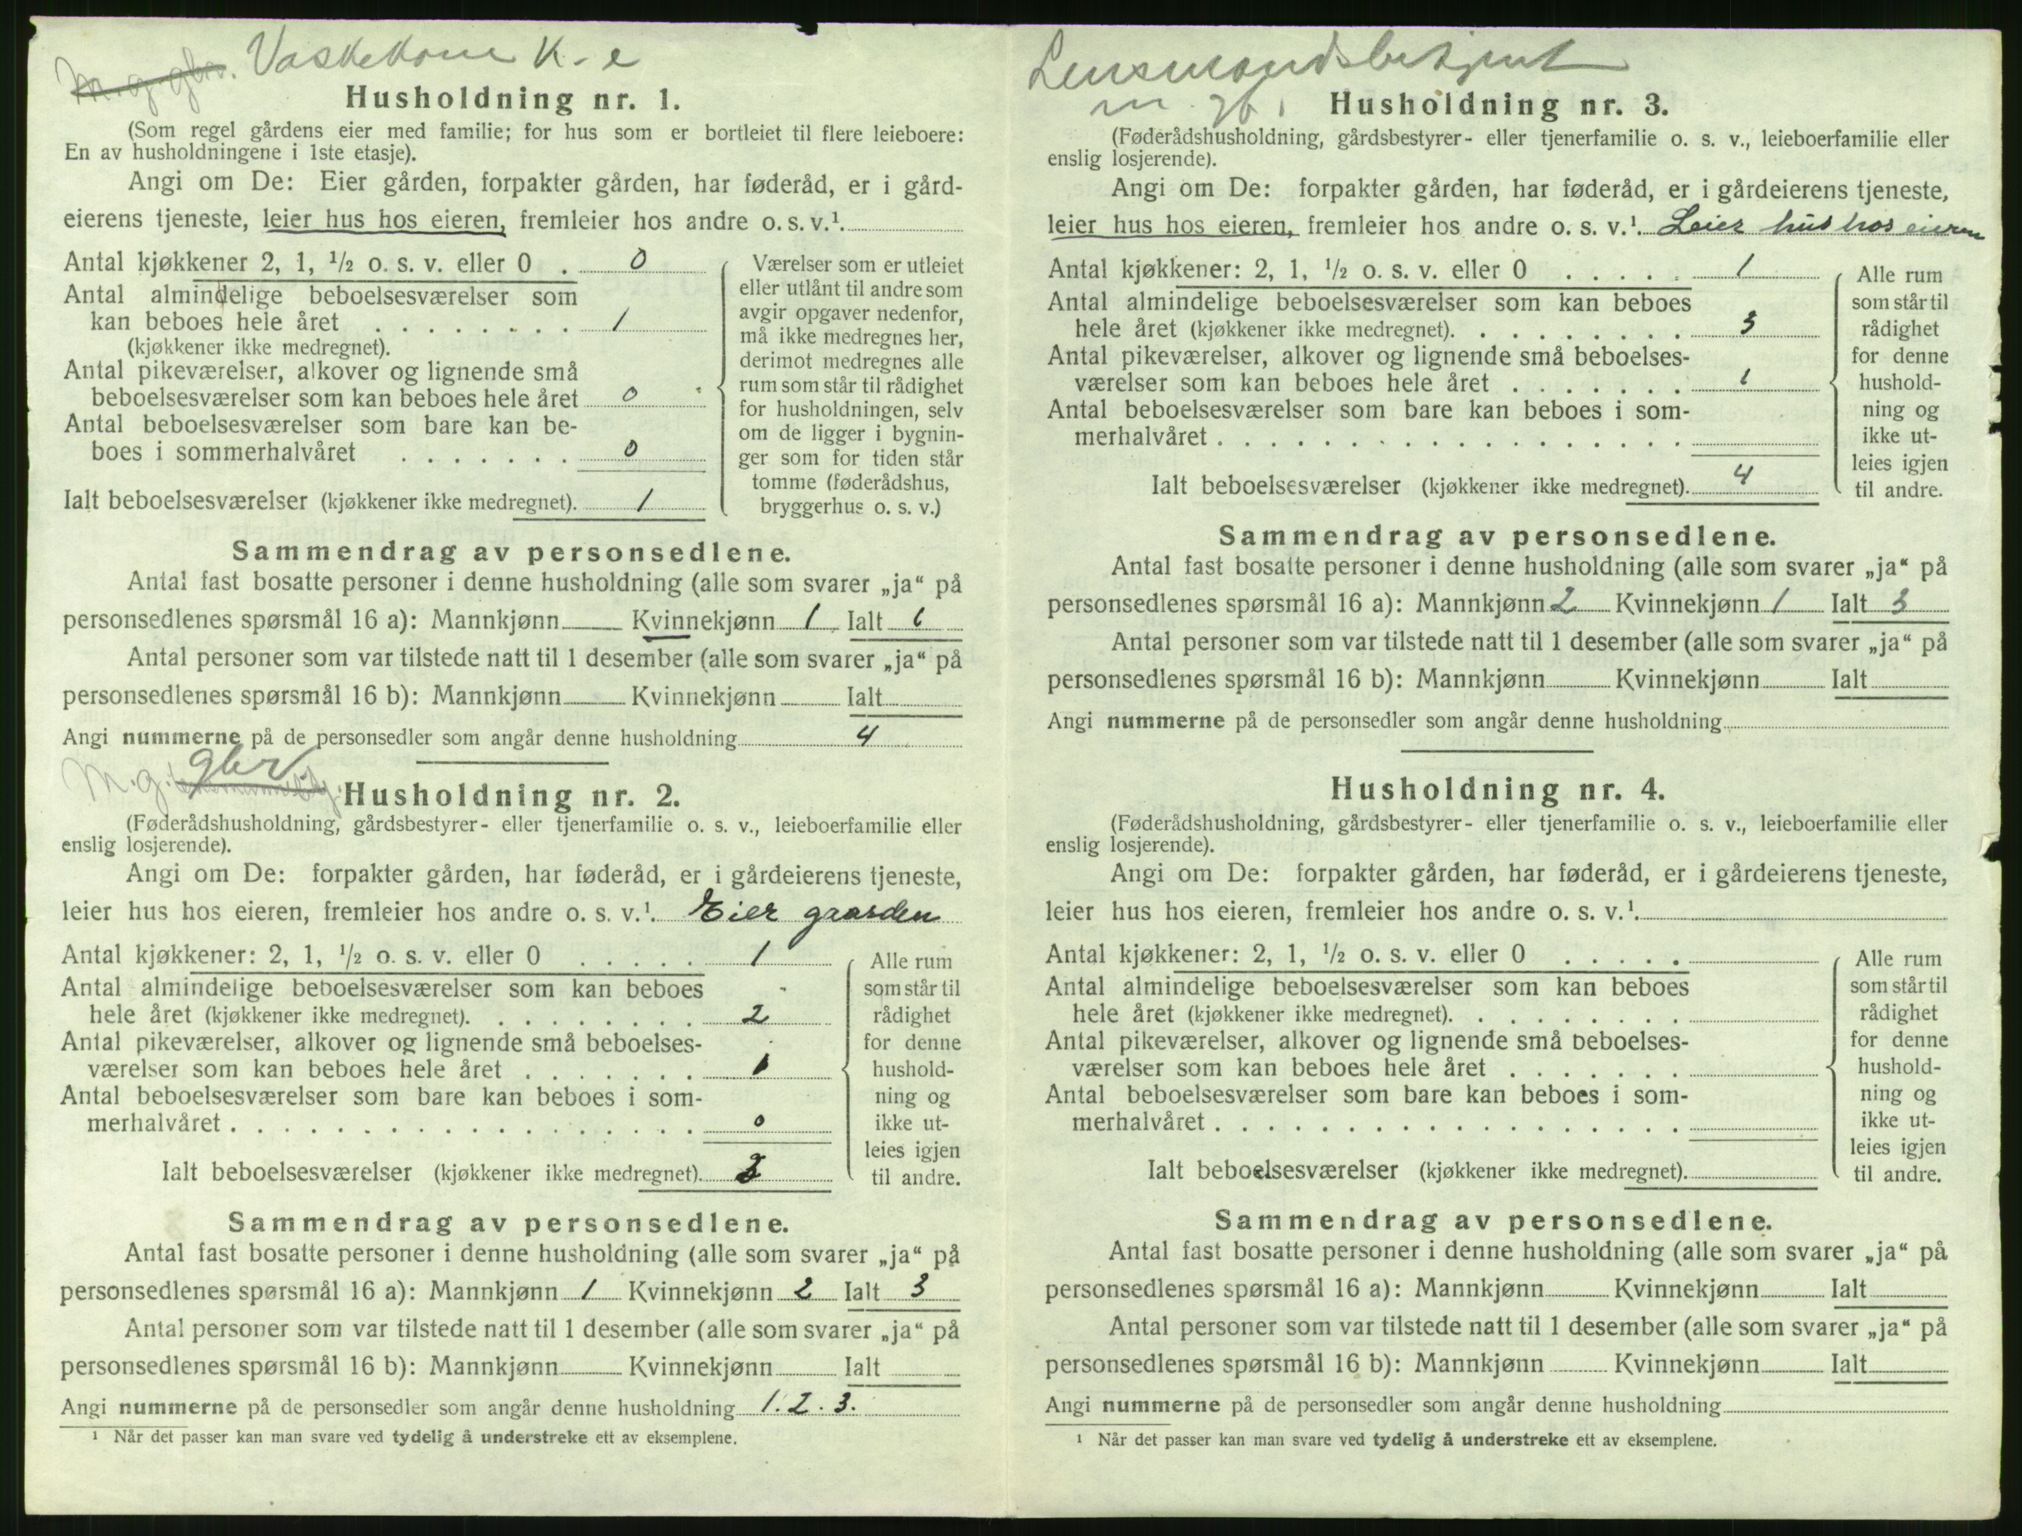 Vaskekone K-e
Husholdning nr. 1.
(Som regel gårdens eier med familie; for hus som er bortleiet til flere leieboere:
En av husholdningene i 1ste etasje).
Angi om De: Eier gården, forpakter gården, har føderåd, er i gård-
eierens tjeneste, leier hus hos eieren, fremleier hos andre o. s. v.¹.
Antal kjøkkener 2, 1, ½ o. s. v. eller 0 . 0
Antal almindelige beboelsesværelser som
kan beboes hele året . . . . . . . . 1
(kjøkkener ikke medregnet).
Antal pikeværelser, alkover og lignende små
beboelsesværelser som kan beboes hele året 0
Antal beboelsesværelser som bare kan be-
boes i sommerhalvåret . . . . . . . 0
Ialt beboelsesværelser (kjøkkener ikke medregnet). 1
Værelser som er utleiet
eller utlånt til andre som
avgir opgaver nedenfor,
må ikke medregnes her,
derimot medregnes alle
rum som står til rådighet
for husholdningen, selv
om de ligger i bygnin-
ger som for tiden står
tomme (føderådshus,
bryggerhus o. s. v.)
Sammendrag av personsedlene.
Antal fast bosatte personer i denne husholdning (alle som svarer „ja“ på
personsedlenes spørsmål 16 a): Mannkjønn Kvinnekjønn 1 Ialt 1
Antal personer som var tilstede natt til 1 desember (alle som svarer „ja“ på
personsedlenes spørsmål 16 b): Mannkjønn Kvinnekjønn Ialt
Angi nummerne på de personsedler som angår denne husholdning 4
M.g. gbr
Husholdning nr. 2.
(Føderådshusholdning, gårdsbestyrer- eller tjenerfamilie o. s. v., leieboerfamilie eller
enslig losjerende).
Angi om De: forpakter gården, har føderåd, er i gårdeierens tjeneste,
leier hus hos eieren, fremleier hos andre o. s. v.¹. Eier gaarden
Antal kjøkkener: 2, 1, ½ o. s. v. eller 0 . . . . . 1
Antal almindelige beboelsesværelser som kan beboes
hele året (kjøkkener ikke medregnet). . . . . . . . 2
Antal pikeværelser, alkover og lignende små beboelses-
værelser som kan beboes hele året . . . . . . . 1
Antal beboelsesværelser som bare kan beboes i som-
merhalvåret . . . . . . . . . . . . . . . . . . 0
Ialt beboelsesværelser (kjøkkener ikke medregnet). 3
Alle rum
som står til
rådighet
for denne
hushold-
ning og
ikke ut-
leies igjen
til andre.
Sammendrag av personsedlene.
Antal fast bosatte personer i denne husholdning (alle som svarer „ja“ på
personsedlenes spørsmål 16 a): Mannkjønn 1 Kvinnekjønn 2 Ialt 3
Antal personer som var tilstede natt til 1 desember (alle som svarer „ja“ på
personsedlenes spørsmål 16 b): Mannkjønn Kvinnekjønn Ialt
Angi nummerne på de personsedler som angår denne husholdning 1. 2. 3.
¹ Når det passer kan man svare ved tydelig å understreke ett av eksemplene.
Lensmandsbetjent
m. gb.
Husholdning nr. 3.
(Føderådshusholdning, gårdsbestyrer- eller tjenerfamilie o. s. v., leieboerfamilie eller
enslig losjerende).
Angi om De: forpakter gården, har føderåd, er i gårdeierens tjeneste,
leier hus hos eieren, fremleier hos andre o. s. v.¹. Leier hus hos eieren
Antal kjøkkener: 2, 1, ½ o. s. v. eller 0 . . . . . 1
Antal almindelige beboelsesværelser som kan beboes
hele året (kjøkkener ikke medregnet). . . . . . . . 3
Antal pikeværelser, alkover og lignende små beboelses-
værelser som kan beboes hele året . . . . . . . 1
Antal beboelsesværelser som bare kan beboes i som-
merhalvåret . . . . . . . . . . . . . . . . . .
Ialt beboelsesværelser (kjøkkener ikke medregnet). 4
Alle rum
som står til
rådighet
for denne
hushold-
ning og
ikke ut-
leies igjen
til andre.
Sammendrag av personsedlene.
Antal fast bosatte personer i denne husholdning (alle som svarer „ja“ på
personsedlenes spørsmål 16 a): Mannkjønn 2 Kvinnekjønn 1 Ialt 3
Antal personer som var tilstede natt til 1 desember (alle som svarer „ja“ på
personsedlenes spørsmål 16 b): Mannkjønn Kvinnekjønn Ialt
Angi nummerne på de personsedler som angår denne husholdning
Husholdning nr. 4.
(Føderådshusholdning, gårdsbestyrer- eller tjenerfamilie o. s. v., leieboerfamilie eller
enslig losjerende).
Angi om De: forpakter gården, har føderåd, er i gårdeierens tjeneste,
leier hus hos eieren, fremleier hos andre o. s. v.¹.
Antal kjøkkener: 2, 1, ½ o. s. v. eller 0 . . . . .
Antal almindelige beboelsesværelser som kan beboes
hele året (kjøkkener ikke medregnet). . . . . . . .
Antal pikeværelser, alkover og lignende små beboelses-
værelser som kan beboes hele året . . . . . . .
Antal beboelsesværelser som bare kan beboes i som-
merhalvåret . . . . . . . . . . . . . . . . . .
Ialt beboelsesværelser (kjøkkener ikke medregnet).
Alle rum
som står til
rådighet
for denne
hushold-
ning og
ikke ut-
leies igjen
til andre.
Sammendrag av personsedlene.
Antal fast bosatte personer i denne husholdning (alle som svarer „ja“ på
personsedlenes spørsmål 16 a): Mannkjønn Kvinnekjønn Ialt
Antal personer som var tilstede natt til 1 desember (alle som svarer „ja“ på
personsedlenes spørsmål 16 b): Mannkjønn Kvinnekjønn Ialt
Angi nummerne på de personsedler som angår denne husholdning
¹ Når det passer kan man svare ved tydelig å understreke ett av eksemplene.